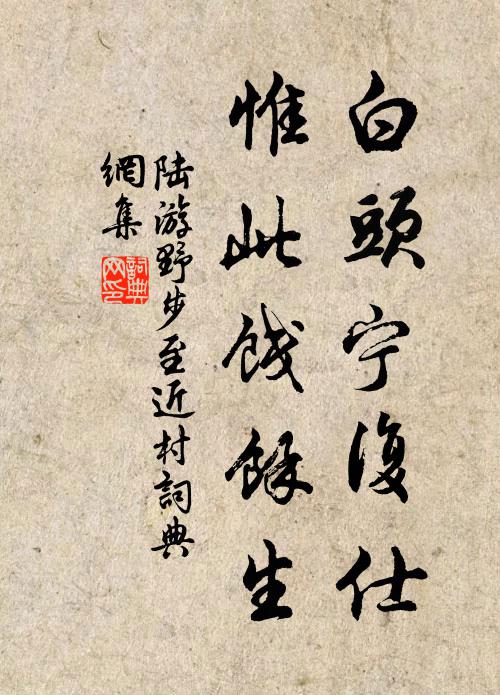 白頭宁復仕
惟此餞餘生
陸游野步至近村詞典
網集
詞典網印